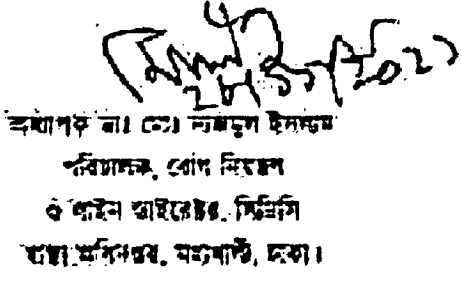 অধ্যাপক ডাঃ মোঃ নাজমুল ইসলাম
পরিচালক, রোগ নিয়ন্ত্রণ
ও লাইন ডাইরেক্টর, সিডিসি
স্বাস্থ্য অধিদপ্তর, মহাখালী, ঢাকা।